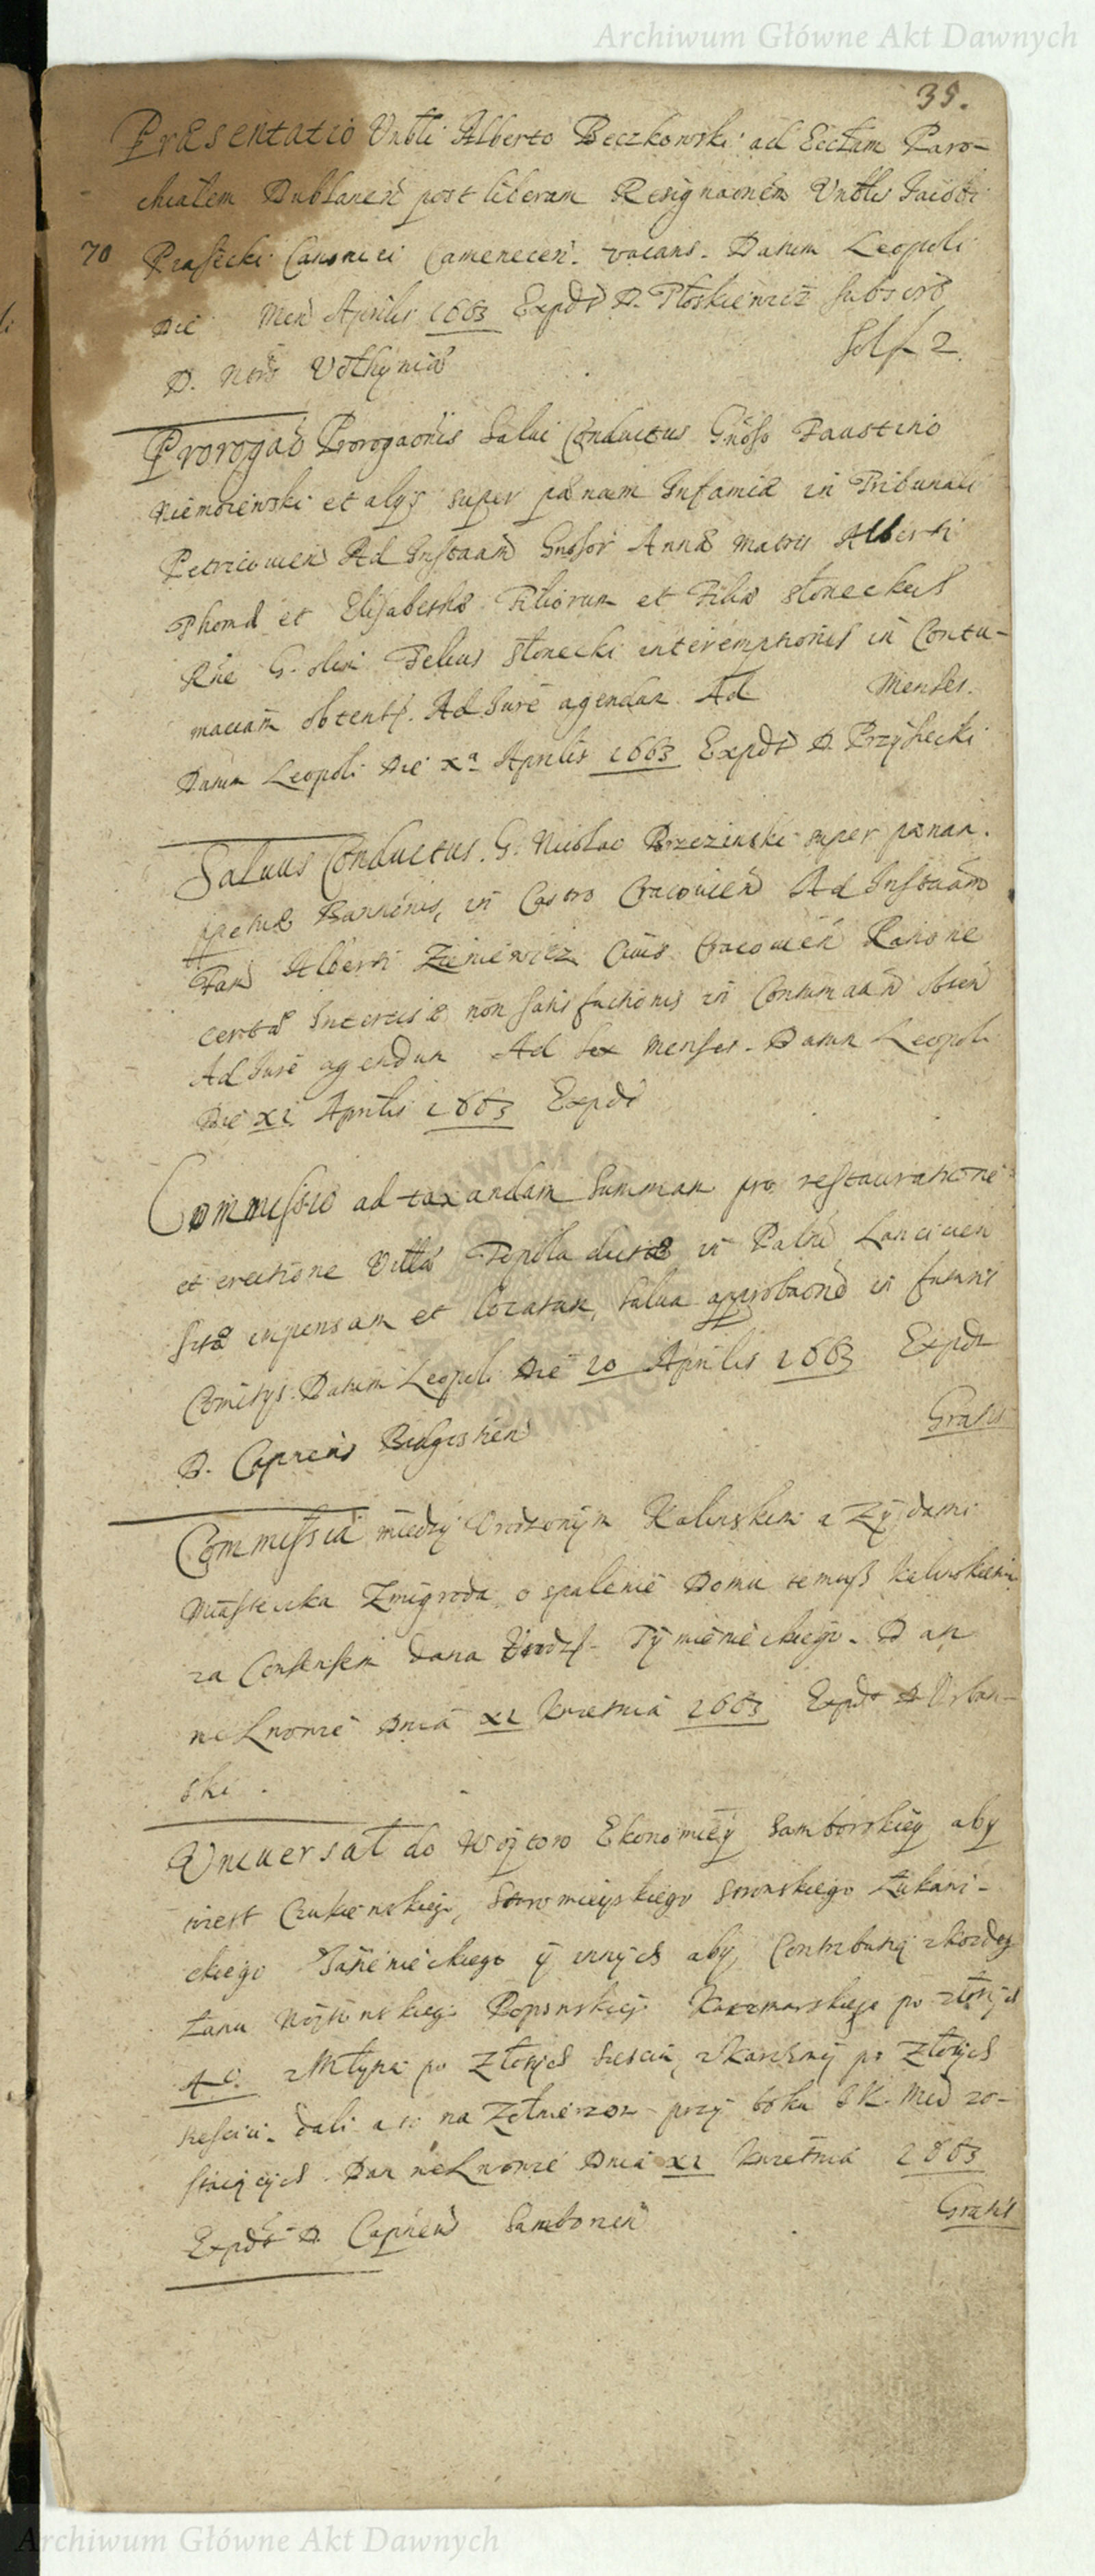 Archiwum Główne Akt Dawnych
35.
Præsentatio Vnbli Alberto Beczkowski ad Eccłam Paro-
chialem Dublanen post liberam Resignaonem Vnblis Jacobi
70 Piasecki Canonici Camenecen. vacans. Datum Leopoli
Die Men Aprilis 1663 Expdt D. Płoskiewicz Subscrb
D. Nors Vołhyniæ Sol f 2.
Prorogao Prorogaonis Salui Conductus Gnoso Faustino
Niemoiewski et alys super pænam Infamiæ in Tribunali
Petricouien Ad Instaam Gnosor Annæ Matris Alberti
Thomæ et Elisabethæ Filiorum et Filiæ Słoneckis
Rne G. olim Felicis Słonecki interemptionis in Contu-
maciam obtent. Ad Jure agendum. Ad Menses.
Datum Leopoli Die xa Aprilis 1663 Expdt D. Przyłecki
Saluus Conductus. G. Nicolao Brzezinski super pænam.
ppetuæ Bannonis, in Castro Cracouien Ad Instaam
Fam Alberti Cuis Cracouien Ratione
certæ Intercisæ non satisfactionis in Contumaam obten
Ad Jure agendum Ad sex Menses. Datum Leopoli
Die XI Aprilis 1663 Expdt
Commissio ad taxandam Summam pro restauratione
et erectione Villæ Topola dictæ in Palnu Lancicien
sitæ inpensam et locatam, salua approbaone in futuris
Comitys. Datum Leopoli Die 10 Aprilis 1663 Expdt
D. Capneus Bidgostien Gratis
Commissia między Urodzonym Kalinskim a Zydami
Miasteczka Zmigroda o spalenie Domu temuß Kalinskiemu
za Consensem dana Urodz. Tymienieckiego. Dan
we Lwowie Dnia XI Kwietnia 1663 Expdt D Urban-
ski.
Uniuersał do Woytow Ekonomiey Samborskiey aby
wiest Czukiewskiego, Staromieyskiego Stronskiego Łukawi-
ckiego Jasienieckiego y innych aby, Contributią zkożdeg
Łanu Woytowskieg Popowskiego Karczmarskiego po złotych
40. z Młyna po Złotych sześciu, zkarczmy po Złotych
sesciu. dali a to na Zołnierzow przy boku JK. Mci zo-
staiących. Dan we Lwowie Dnia XI Kwietnia 1663
Expdt D. Capneus Samborien Gratis
Archiwum Główne Akt Dawnych